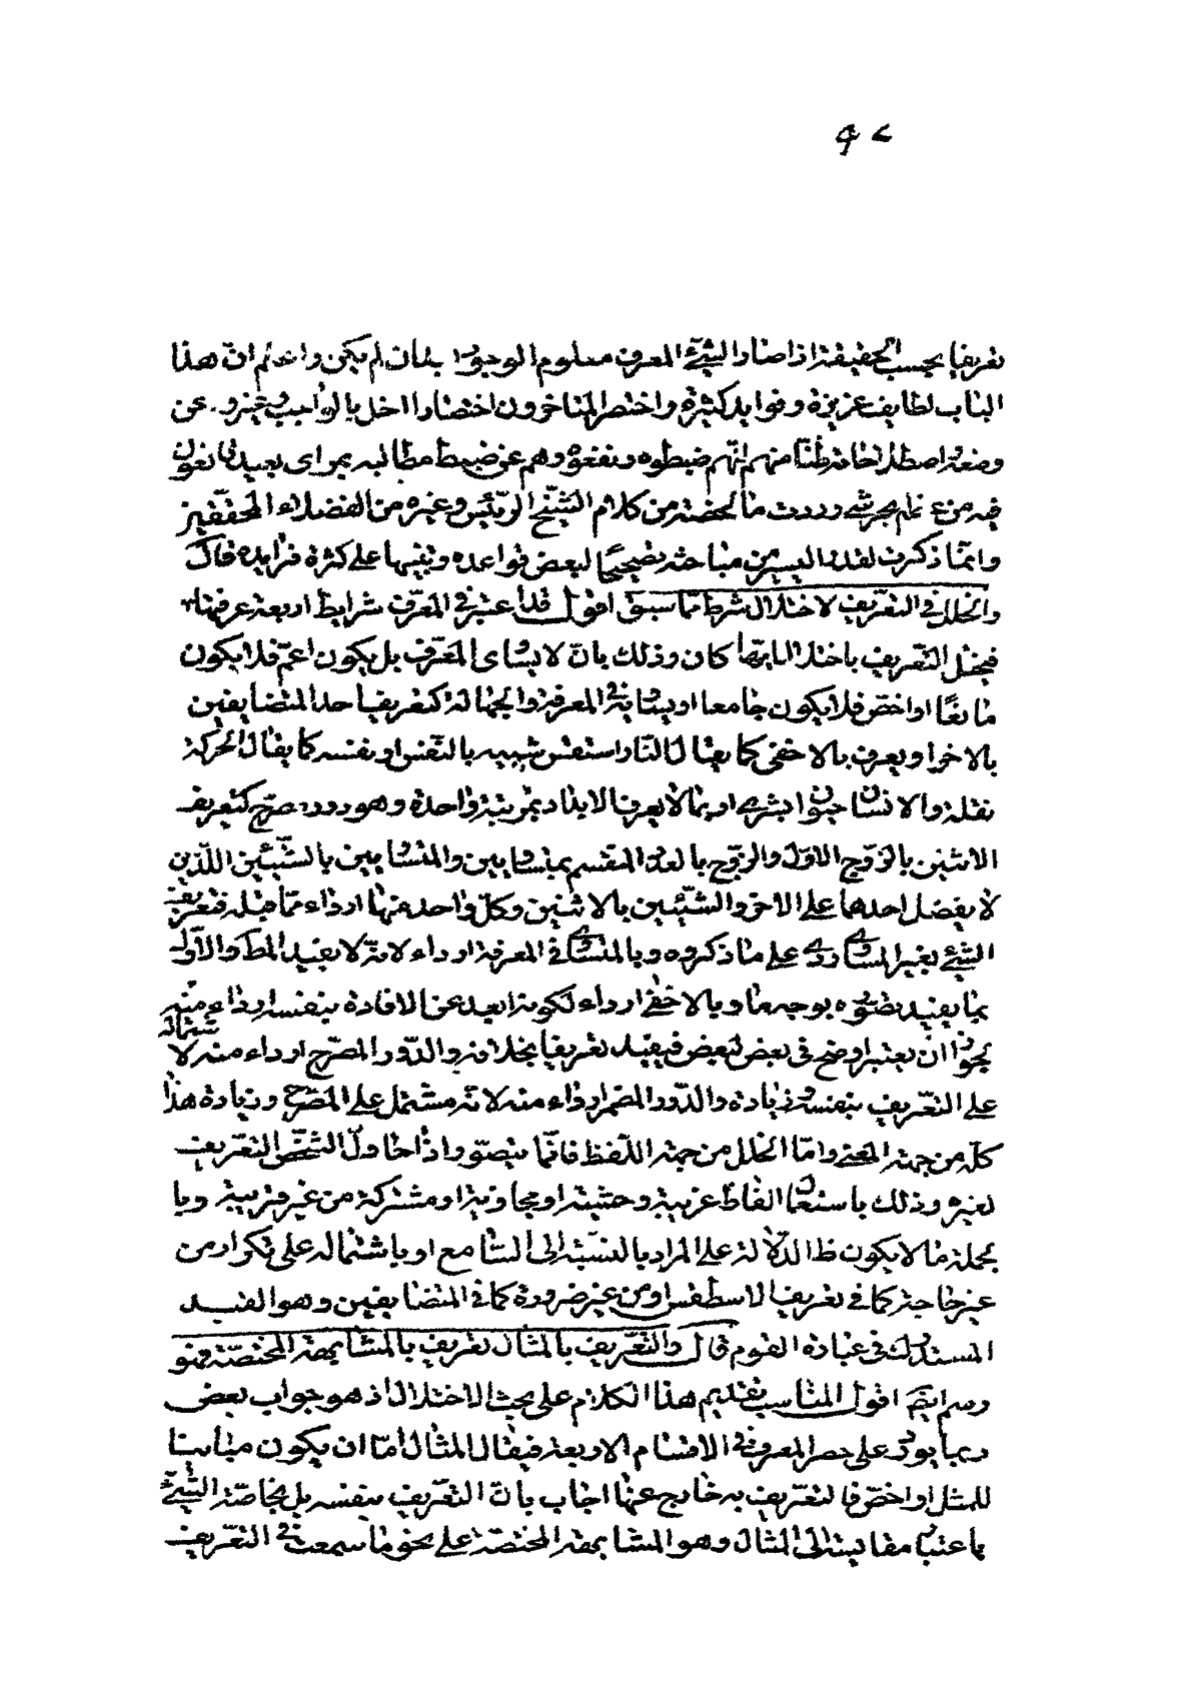 تعريفا بحسب الحقيقة اذا صار الشئ المعرف معلوم الوجود بعد ان لم يكن واعلم ان هذا
الباب لطايف عزيزة وفوايد كثيرة واختصر المتاخرون اختصارا اخل بالواجب عن
وضعه اصطلاحا ظنا منهم انهم ضبطوه ونفعوه وهم عن ضبط مطالبه بمراى بعيد
فيه من علم ما لخصته من كلام الشيخ الرئيس وغيره من الفضلاء المحققين
وانما ذكرت لقدر اليسير من مباحثه توضيحا لبعض قواعده وتنبيها على كثرة فرايده قال
والخلل في التعريف لاختلال شرط مما سبق اقول قد اعتبر في المعرف شرايط اربعة عرفتها
فيختل التعريف باختلال ايها كان وذلك بان لا يساوى المعرف بل يكون اعم فلا يكون
مانعا او اخص فلا يكون جامعا او يساويه في المعرفة والجهالة كتعريف احد المتضايفين
بالاخر او يعرف بالاخفى كما يقال النار اسطقس شبيه بالنفس او بنفسه كما يقال الحركة
نقلة والانسان حيوان بشرى او بما لا يعرف الا به اما بمرتبة واحدة وهو دور مصرح كتعريف
الاثنين بالزوج الاول والزوج بالعدد المنقسم بمتساويين والمتساويين بالشيئين اللذين
لا يفضل احدهما على الاخر والشيئين بالاثنين وكل واحد منها اردء مما قبله فتعريف
الشئ بغير المساوى ردى على ما ذكروه وبالمساوى في المعرفة اردء لانه لا يفيد المط والاول
بما يفيد تصوره بوجه ما وبالاخفى اردء لكونه ابعد عن الافادة بنفسه اردء منه
لجواز ان يعتبر اوضح في بعض لبعض فيفيد تعريفا بخلافه والدور المصرح اردء منه لاشتماله
على التعريف بنفسه وزيادة والدور المضمر اردء منه لانه مشتمل على المصرح وزيادة هذا
كله من جهة المعنى واما الخلل من جهة اللفظ فانما يتصور اذا حاول الشخص التعريف
لغيره وذلك باستعمال الفاظ غريبة وحشية او مجازية او مشتركة من غير قرينة وبا
لجملة ما لا يكون ظ الدلالة على المراد بالنسبة الى السامع او باشتماله على تكرار من
غير حاجة كما في تعريف الاسطقس او من غير ضرورة كما في المتضايفين وهو القيد
المستدرك في عبارة القوم قال والتعريف بالمثال تعريف بالمشابهة المختصة فهو
رسم ايضا اقول المناسب تقديم هذا الكلام على بحث الاختلال اذ هو جواب بعض
ربما يورد على حصر المعرف في الاقسام الاربعة فيقال المثال اما ان يكون مباينا
للمثل او اخص فالتعريف به خارج عنها اجاب بان التعريف ليس بنفسه بل بخاصة الشئ
باعتبار مقايسته الى المثال وهو المشابهة المختصة على نحو ما سمعت في التعريف